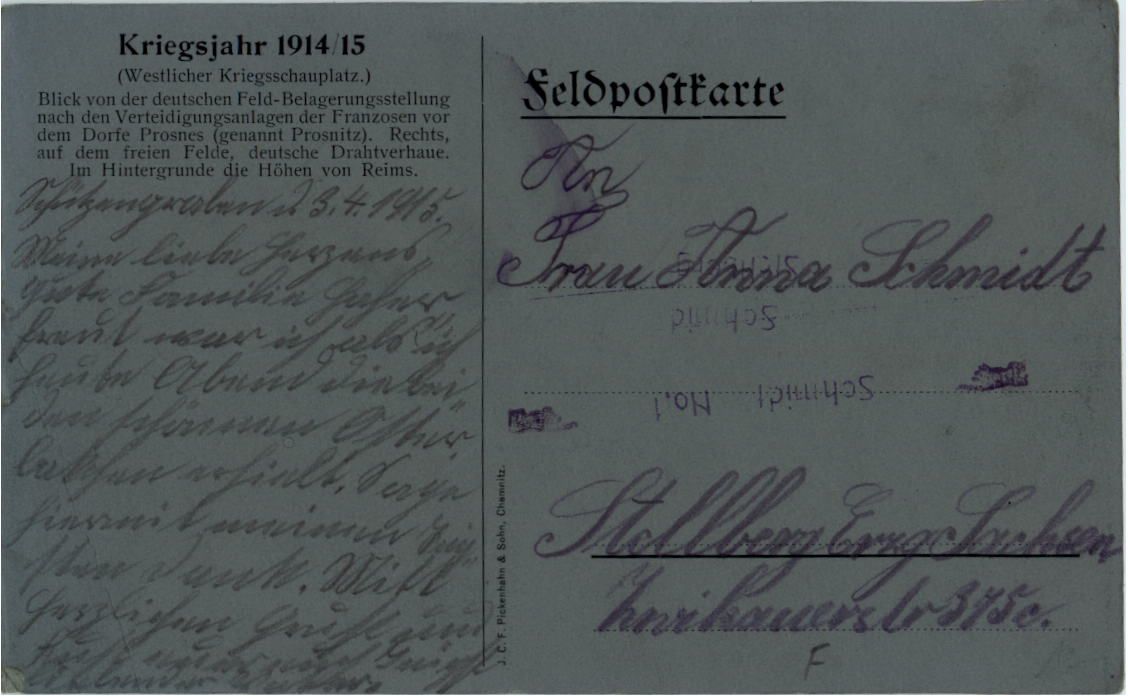 Kriegsjahr 1914/15
(Westlicher Kriegsschauplatz.)
Blick von der deutschen Feld-Belagerungsstellung
nach den Verteidigungsanlagen der Franzosen vor
dem Dorfe Prosnes (genannt Prosnitz). Rechts,
auf dem freien Felde, deutsche Drahtverhaue.
Im Hintergrunde die Höhen von Reims.
Schützengraben d 3.4.1915.
Meine liebe Herzens
gute Familie
war ich als ich
heute Abend die bei
den schönen Oster
erhielt. Sage
hiermit meinen
Dank. Mitt
herzlichen Gruß und
J. C. F. Pickenhahn & Sohn, Chemnitz.
Feldpostkarte
An
Frau Anna Schmidt
Schmid
Schmidt No. 1
Stollberg Erzg Sachsen
Zwikauerstr 375c.
F